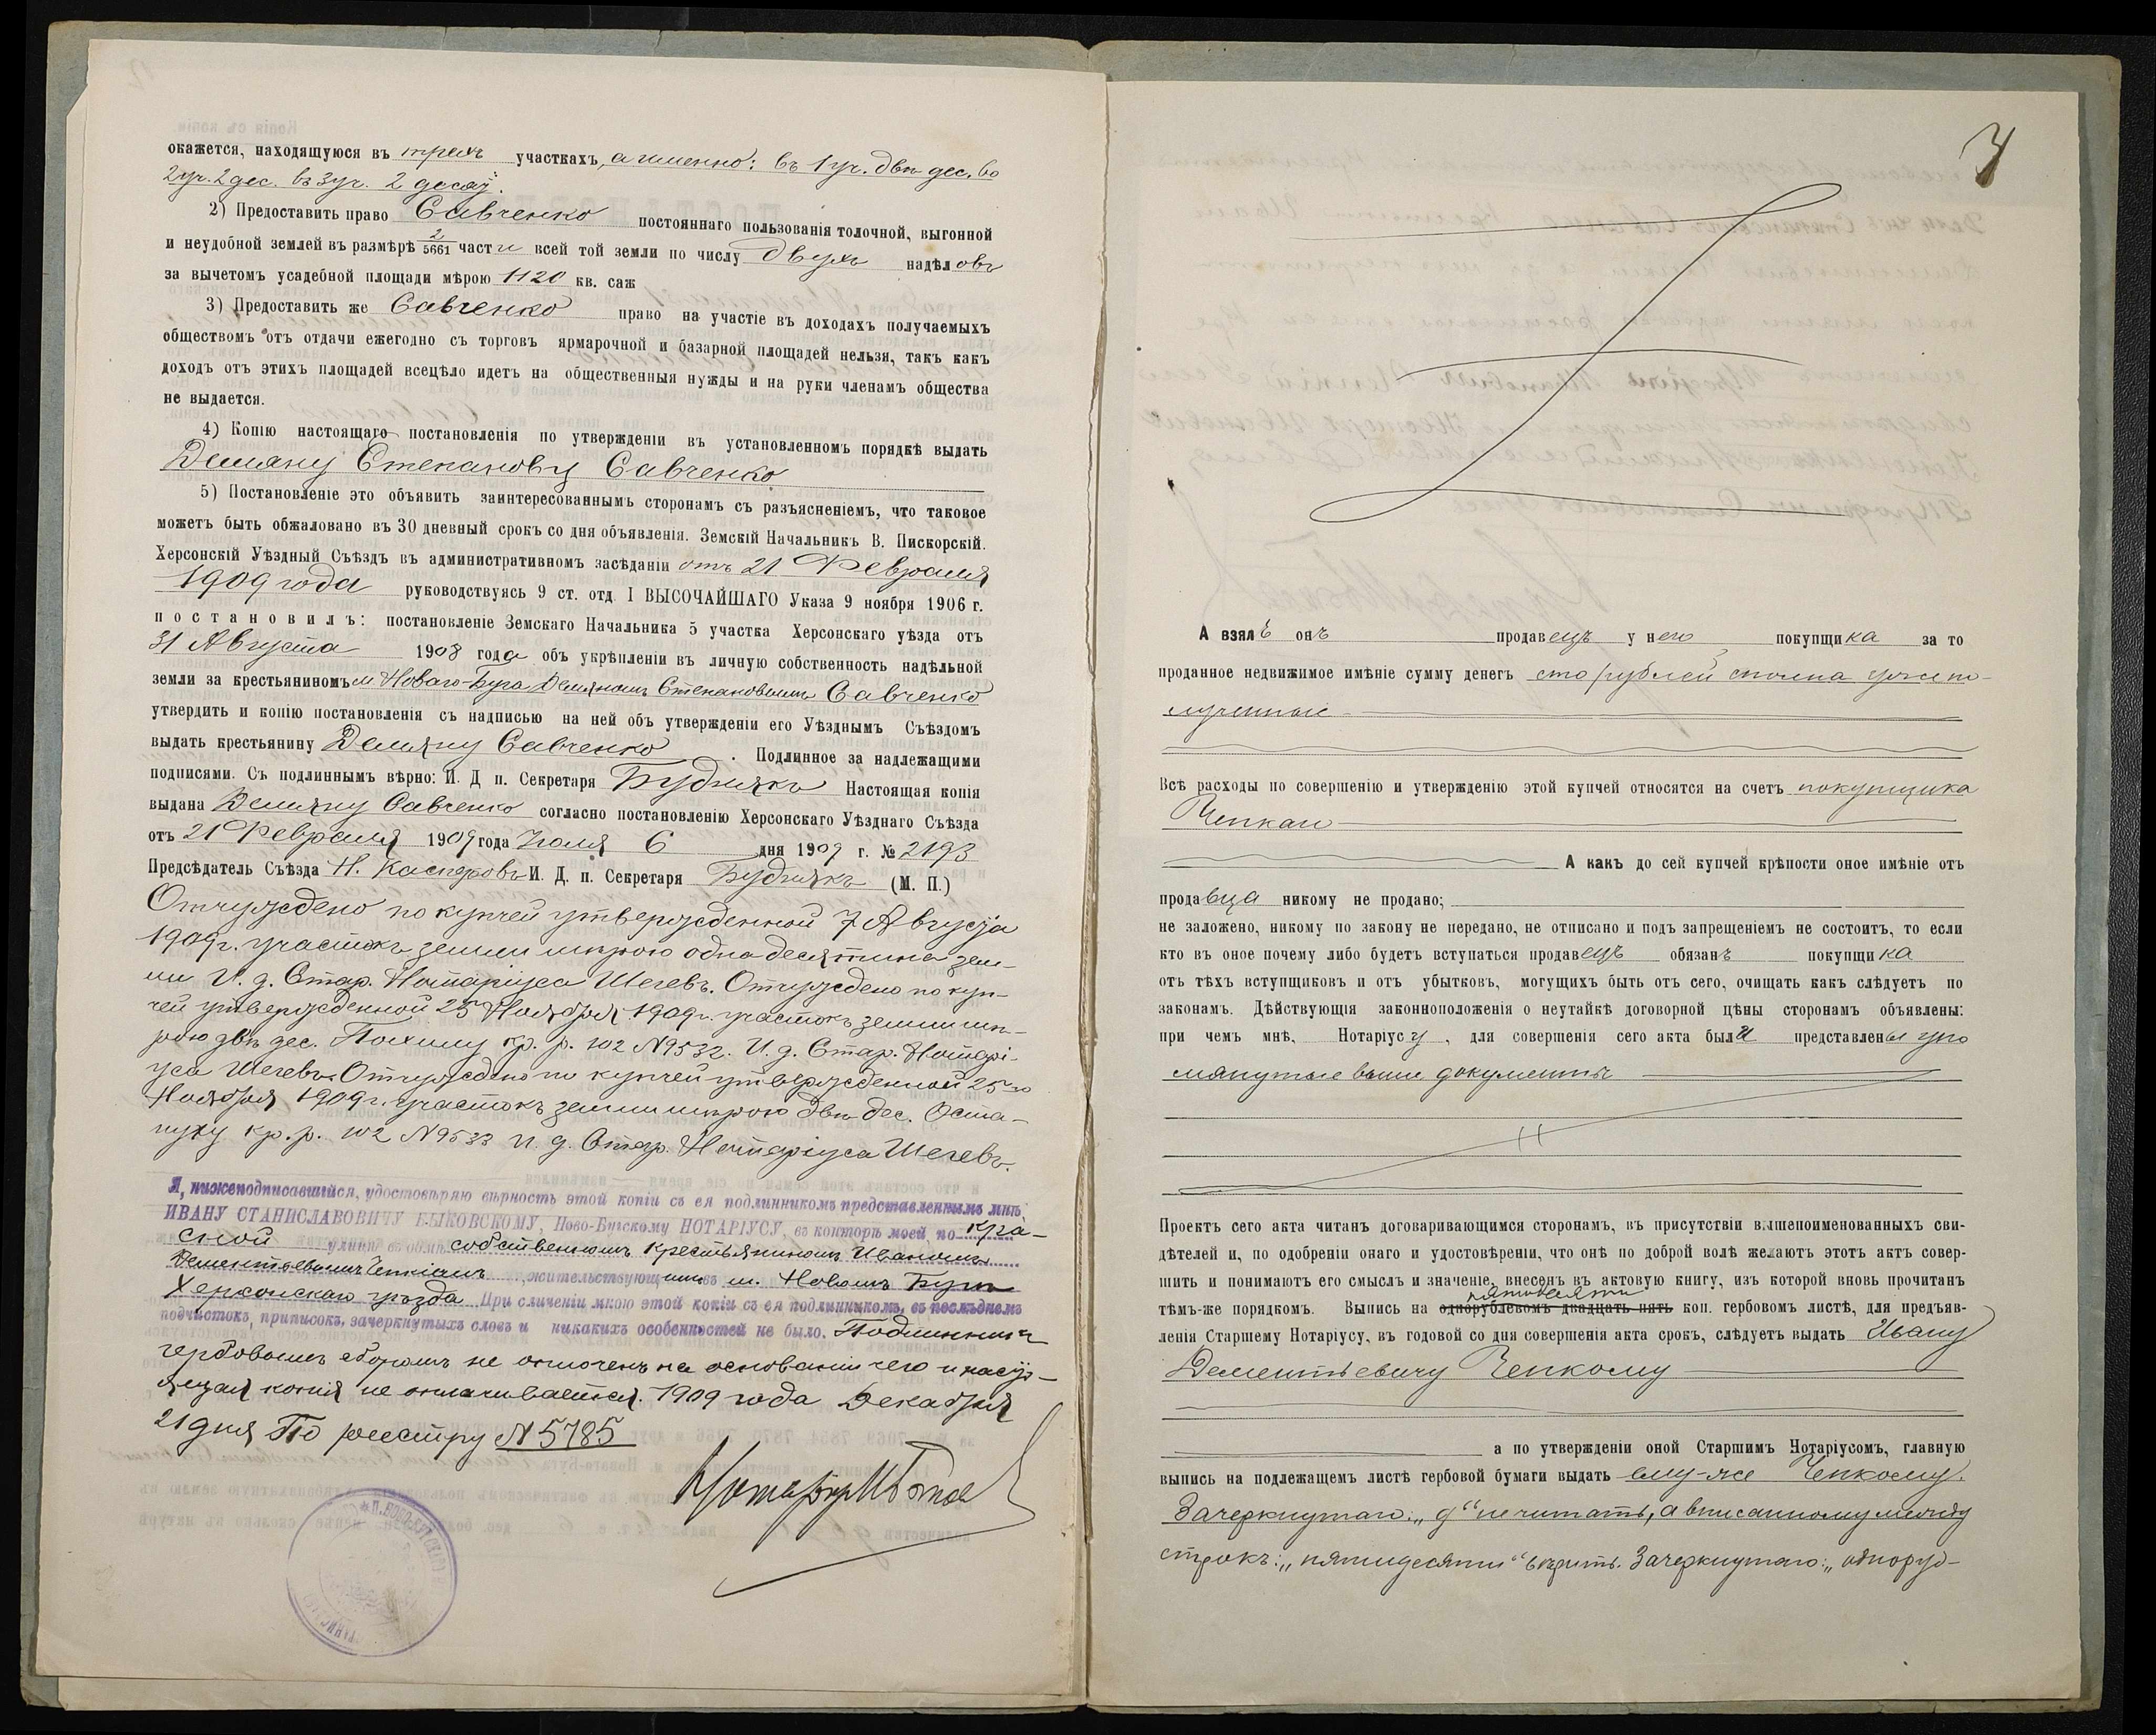 окажется, находящуюся въ трехъ участкахъ, а именно: въ 1 уч. двѣ дес. во
2 уч. 2 дес. въ 3 уч. 2 десят.
2) Предоставить право Савченко постояннаго пользованія толочной, выгонной
и неудобной землей въ размѣрѣ 2/5661 части всей той земли по числу двухъ надѣловъ
за вычетомъ усадебной площади мѣрою 1120 кв. саж
3) Предоставить же Савченко право на участіе въ доходахъ получаемыхъ
обществомъ отъ отдачи ежегодно съ торговъ ярмарочной и базарной площадей нельзя, такъ какъ
доходъ отъ этихъ площадей всецѣло идетъ на общественныя нужды и на руки членамъ общества
не выдается.
4) Копію настоящаго постановленія по утвержденіи въ установленномъ порядкѣ выдать
Демяну Степановичу Савченко
5) Постановленіе это объявить заинтересованнымъ сторонамъ съ разъясненіемъ, что таковое
можетъ быть обжаловано въ 30 дневный срокъ со дня объявленія. Земскій Начальникъ В. Пискорскій.
Херсонскій Уѣздный Съѣздъ въ административномъ засѣданіи отъ 21 Февраля
1909 года руководствуясь 9 ст. отд. I ВЫСОЧАЙШАГО Указа 9 ноября 1906 г.
постановилъ: постановленіе Земскаго Начальника 5 участка Херсонскаго уѣзда отъ
31 Августа 1908 года объ укрѣпленіи въ личную собственность надѣльной
земли за крестьяниномъ м. Новаго-Буга Демяномъ Степановымъ Савченко
утвердить и копію постановленія съ надписью на ней объ утвержденіи его Уѣзднымъ Съѣздомъ
выдать крестьянину Демяну Савченко. Подлинное за надлежащими
подписями. Съ подлиннымъ вѣрно: И. Д п. Секретаря Буднякъ Настоящая копія
выдана Демяну Савченко согласно постановленію Херсонскаго Уѣзднаго Съѣзда
отъ 21 Февраля 1909 года Іюля 6 дня 1909 г. № 2193
Предсѣдатель Съѣзда Н. Касперовъ И. Д. п. Секретаря Буднякъ (М. П.)
Отчуждено по купчей утвержденной 7 Августа
1909 г. участокъ земли мѣрою одна десятина зем-
ли И. д. Стар. Нотаріуса Шегевъ. Отчуждено по куп-
чей утвержденной 25 Ноября 1909 г. участокъ земли мѣ-
рою двѣ дес. кр. р. 102 N9532. И. д. Стар. Нотарі-
уса Шегевъ. Отчуждено по купчей утвержденной 25-го
Ноября 1909 г. участокъ земли мѣрою двѣ дес. Оста-
пуку кр. р. 102 N9533 И. д. Стар. Нотаріуса Шегевъ.
Я, нижеподписавшійся, удостовѣряю вѣрность этой копіи съ ея подлинникомъ представленнымъ мнѣ,
ИВАНУ СТАНИСЛАВОВИЧУ БЫКОВСКОМУ, Ново-Бугскому НОТАРІУСУ, въ конторѣ моей, по Кра-
сной улицѣ въ домѣ собственномъ крестьяниномъ Иваномъ
Дементьевымъ Чепкимъ, жительствующимъ въ м. Новомъ Бугѣ
Херсонскаго уѣзда При сличеніи мною этой копіи съ ея подлинникомъ, въ послѣднемъ
подчистокъ, приписокъ, зачеркнутыхъ словъ и никакихъ особенностей не было. Подлинникъ
гербовымъ сборомъ не оплоченъ на основаніи чего и насто-
ящая копія не оплачивается. 1909 года Декабря
21 дня По реестру N5785
3
А взялъ онъ продавецъ у него покупщика за то
проданное недвижимое имѣніе сумму денегъ сто рублей сполна уже по-
лученные
Всѣ расходы по совершенію и утвержденію этой купчей относятся на счетъ покупщика
А какъ до сей купчей крѣпости оное имѣніе отъ
продавца никому не продано;
не заложено, никому по закону не передано, не отписано и подъ запрещеніемъ не состоитъ, то если
кто въ оное почему либо будетъ вступаться продавецъ обязанъ покупщика
отъ тѣхъ вступщиковъ и отъ убытковъ, могущихъ быть отъ сего, очищать какъ слѣдуетъ по
законамъ. Дѣйствующія законноположенія о неутайкѣ договорной цѣны сторонамъ объявлены:
при чемъ мнѣ, Нотаріусу, для совершенія сего акта были представлены упо
мянутые выше документы
Проектъ сего акта читанъ договаривающимся сторонамъ, въ присутствіи вышепоименованныхъ сви-
дѣтелей и, по одобреніи онаго и удостовѣреніи, что онѣ по доброй волѣ желаютъ этотъ актъ совер-
шить и понимаютъ его смыслъ и значеніе, внесенъ въ актовую книгу, изъ которой вновь прочитанъ
пятидесяти
тѣмъ-же порядкомъ. Выпись на однорублевомъ двадцать пять коп. гербовомъ листѣ, для предъяв-
ленія Старшему Нотаріусу, въ годовой со дня совершенія акта срокъ, слѣдуетъ выдать Ивану
Дементьевичу Чепкому
а по утвержденіи оной Старшимъ Нотаріусомъ, главную
выпись на подлежащемъ листѣ гербовой бумаги выдать ему-же Чепкому.
Зачеркнутаго: „д“ не читать, а вписанному между
строкъ: „пятидесяти“ вѣрить. Зачеркнутаго: „однoруб-